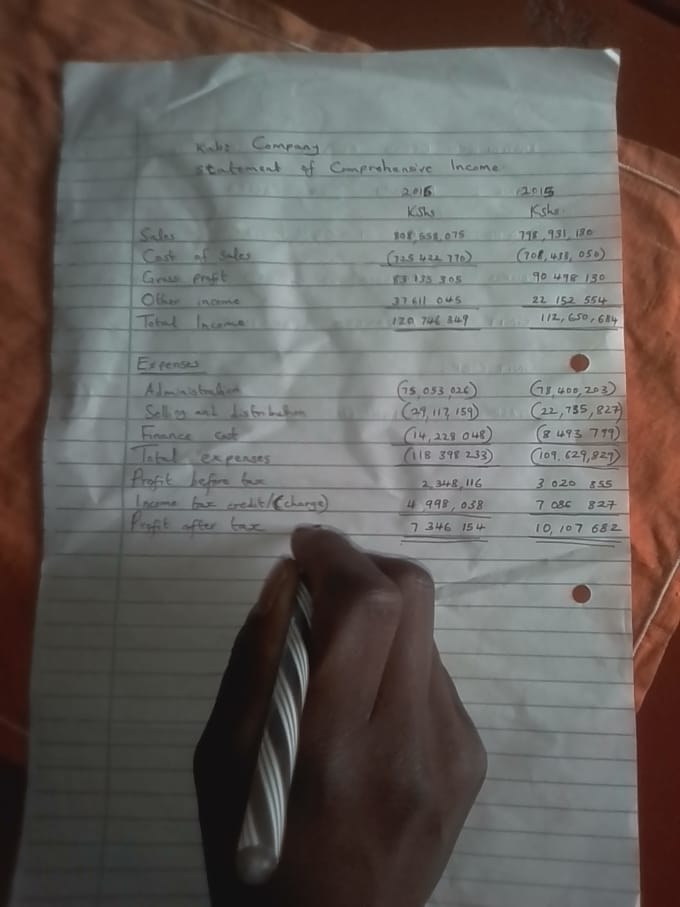 Company
Statement of Comprehensive Income
2016 2015
Kshs Kshs.
Sales 808,558,075 798,931,180
Cost of sales (725 422 770) (708,433,050)
Gross profit 83 135 305 90 498 130
Other income 37 611 045 22 152 554
Total Income 120 746 349 112,650,684
Expenses
Administration (75,053,026) (78,400,203)
Selling and distribution (29,117,159) (22,735,827)
Finance cost (14,228 048) (8 493 799)
Total expenses (118 398 233) (109,629,829)
Profit before tax 2,348,116 3 020 855
Income tax credit/(charge) 4 998,038 7 086 827
Profit after tax 7 346 154 10,107 682